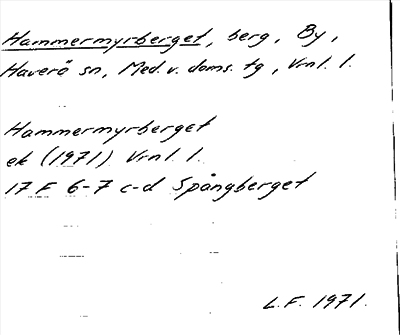 Hammermyrberget, berg, By,
Haverö sn, Med. v. doms. tg, Vrnl. l.
Hammermyrberget
ek (1971) Vrnl. l.
17 F 6-7 c-d Spångberget
L.F. 1971.